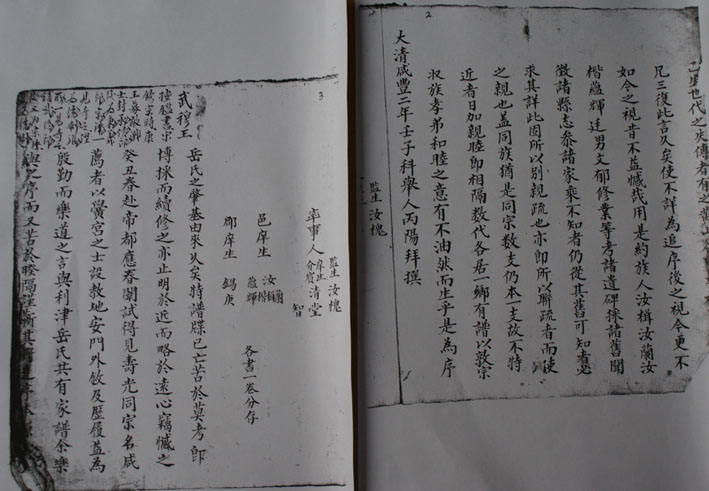 2
世代之失傳者有之
凡三復此言久矣使不詳為追序後之視今更不
如今之視昔不益憾哉用是約族人汝楫汝蘭汝
楷蘊輝廷男文郁修業等考諸遺碑採諸舊聞
徵諸縣志參諸家乘不知者仍從其舊可知者必
求其詳此圖所以別親疏也亦即所以聯疏者而使
之親也蓋同族猶是同宗数支仍本一支故不特
近者日加親睦即相隔数代各居一鄉有譜以敦宗
収族孝弟和睦之意有不油然而生乎是為序
大清咸豐二年壬子科舉人丙陽拜撰
監生 汝槐
3
監生 汝槐
率事人 庠生 介賓 清堂
智
邑庠生 汝 蘭 楫 楷 蘊輝
郡庠生 錫庚
各書一卷分存
岳氏之肇基由來久矣特譜牒已亡苦於莫考即
博採而續修之亦止明於近而略於遠心竊憾之
癸丑春赴帝都應春闈試得見壽光同宗名咸
薦者以黌宮之士設教地安門外敘及歷履益為
殷勤而樂道之言與利津岳氏共有家譜余樂
與之序而又苦於睽隔謹
武穆王
欽宗時康